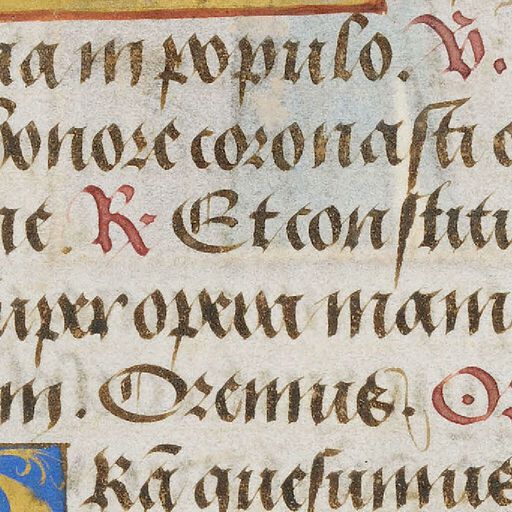 na in populo. V̄.
honore coronasti
ne. R. Et constitu
super opera manu
m. Oremus. Or
Rā quesumus